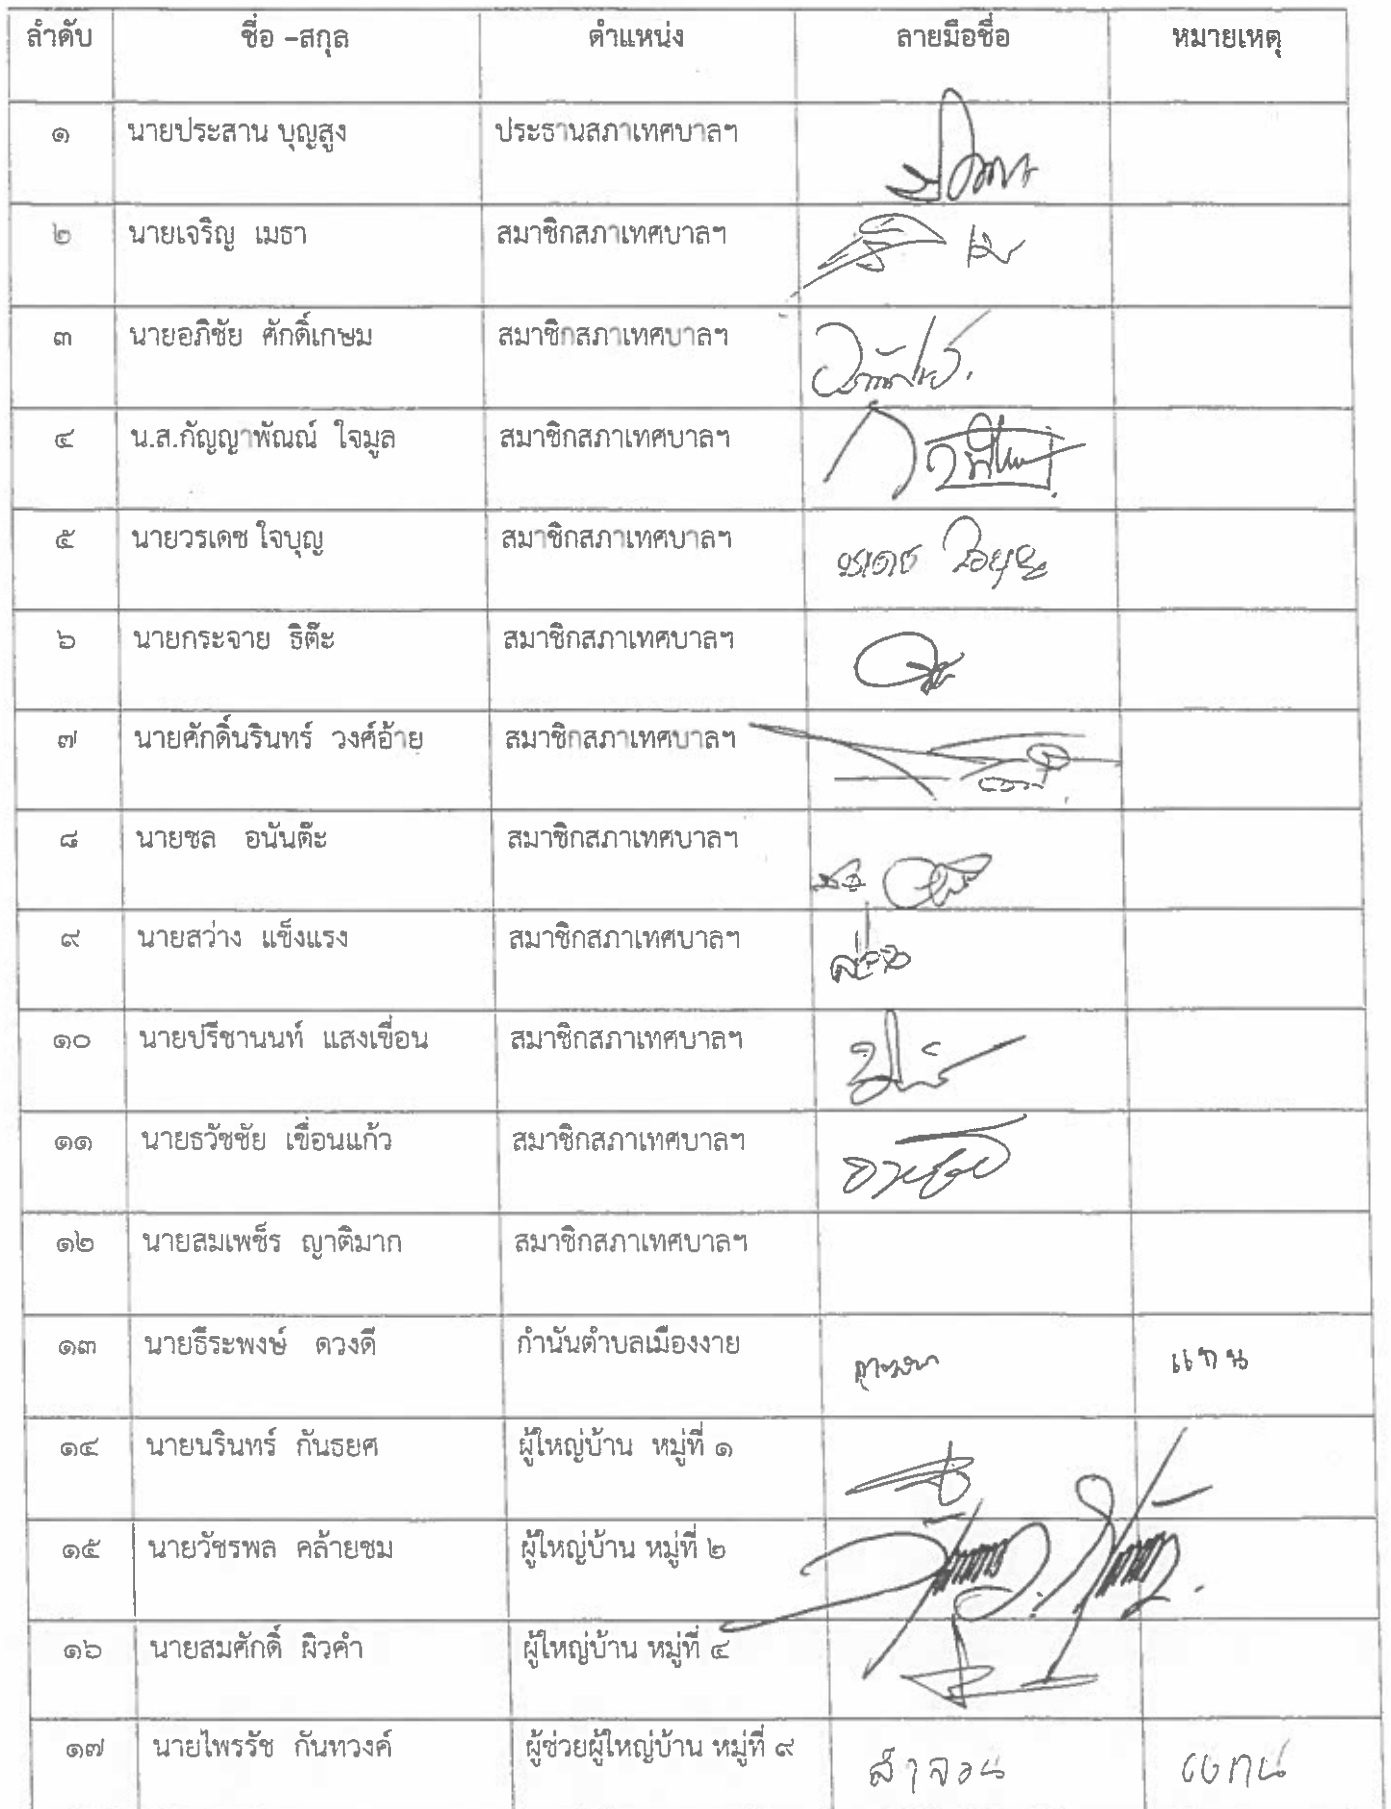 ลำดับ ชื่อ –สกุล ตำแหน่ง ลายมือชื่อ หมายเหตุ
๑ นายประสาน บุญสูง ประธานสภาเทศบาลฯ
๒ นายเจริญ เมธา สมาชิกสภาเทศบาลฯ
๓ นายอภิชัย ศักดิ์เกษม สมาชิกสภาเทศบาลฯ
๔ น.ส.กัญญาพัณณ์ ใจมูล สมาชิกสภาเทศบาลฯ
๕ นายวรเดช ใจบุญ สมาชิกสภาเทศบาลฯ วรเดช ใจบุญ
๖ นายกระจาย ธิต๊ะ สมาชิกสภาเทศบาลฯ
๗ นายศักดิ์นรินทร์ วงศ์อ้าย สมาชิกสภาเทศบาลฯ
๘ นายชล อนันต๊ะ สมาชิกสภาเทศบาลฯ
๙ นายสว่าง แข็งแรง สมาชิกสภาเทศบาลฯ
๑๐ นายปรีชานนท์ แสงเขื่อน สมาชิกสภาเทศบาลฯ
๑๑ นายธวัชชัย เขื่อนแก้ว สมาชิกสภาเทศบาลฯ
๑๒ นายสมเพชร ญาติมาก สมาชิกสภาเทศบาลฯ
๑๓ นายธีระพงษ์ ดวงดี กำนันตำบลเมืองงาย แทน
๑๔ นายนรินทร์ กันธยศ ผู้ใหญ่บ้าน หมู่ที่ ๑
๑๕ นายวัชรพล คล้ายชม ผู้ใหญ่บ้าน หมู่ที่ ๒
๑๖ นายสมศักดิ์ ผิวคำ ผู้ใหญ่บ้าน หมู่ที่ ๔
๑๗ นายไพรรัช กันทวงค์ ผู้ช่วยผู้ใหญ่บ้าน หมู่ที่ ๙ สำจอน แทน